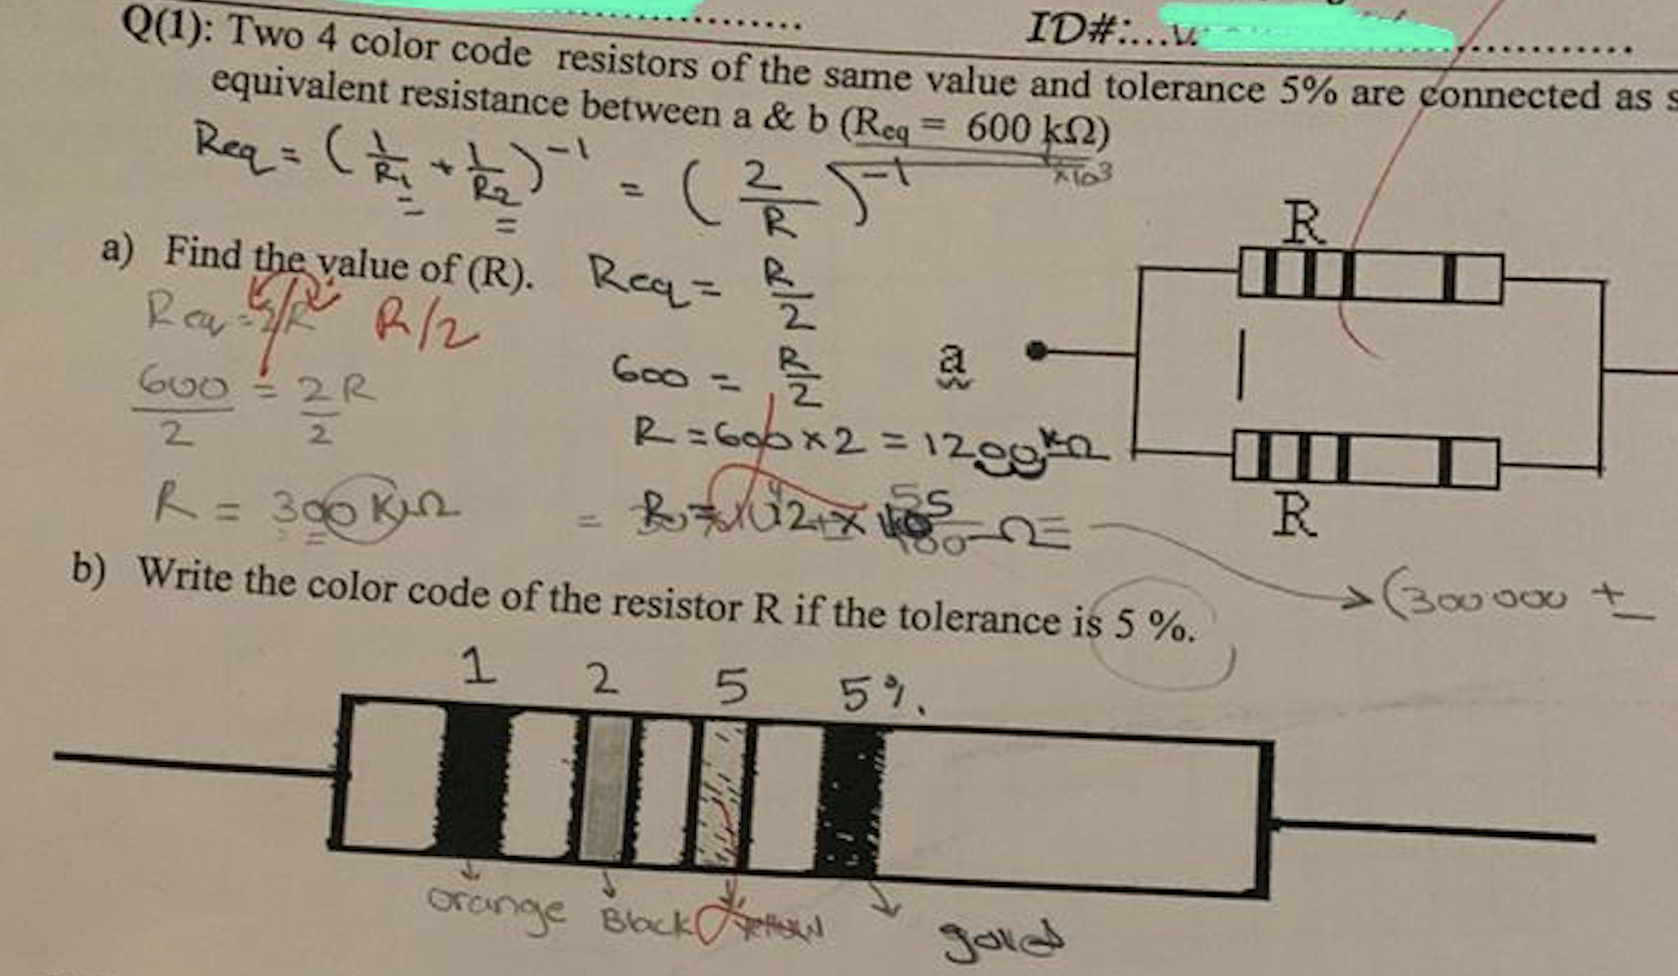 ID#:
Q(1): Two 4 color code resistors of the same value and tolerance 5% are connected as s
equivalent resistance between a & b (Req = 600 kΩ)
×10³
Req = (1/R1 + 1/R2)⁻¹ = (2/R)⁻¹
a) Find the value of (R).
Req = R/2
Req = 2R
R/2
600/2 = 2R/2
600 = R/2
R = 600 × 2 = 1200 kΩ
R = 300 KΩ
R
a
R
(300000 ±
b) Write the color code of the resistor R if the tolerance is 5 %.
1 2 5 5%.
orange Black Yellow gold